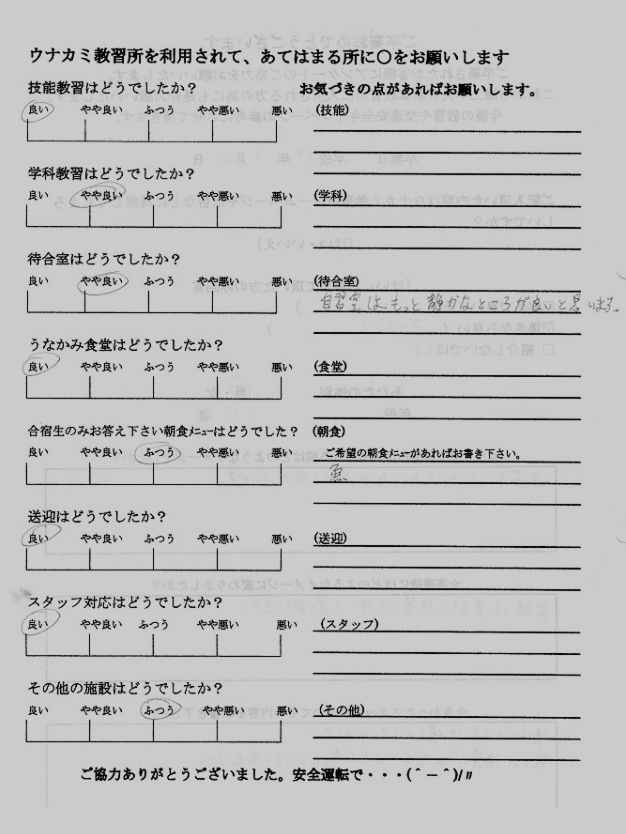 ウナカミ教習所を利用されて、あてはまる所に〇をお願いします
技能教習はどうでしたか？ お気づきの点があればお願いします。
良い やや良い ふつう やや悪い 悪い (技能)
学科教習はどうでしたか？
良い やや良い ふつう やや悪い 悪い (学科)
待合室はどうでしたか？
良い やや良い ふつう やや悪い 悪い (待合室)
自習室はもっと静かなところが良いと思います。
うなかみ食堂はどうでしたか？
良い やや良い ふつう やや悪い 悪い (食堂)
合宿生のみお答え下さい朝食ﾒﾆｭｰはどうでした？ (朝食)
良い やや良い ふつう やや悪い 悪い ご希望の朝食ﾒﾆｭｰがあればお書き下さい。
魚
送迎はどうでしたか？
良い やや良い ふつう やや悪い 悪い (送迎)
スタッフ対応はどうでしたか？
良い やや良い ふつう やや悪い 悪い (スタッフ)
その他の施設はどうでしたか？
良い やや良い ふつう やや悪い 悪い (その他)
ご協力ありがとうございました。安全運転で・・・(＾－＾)/〃